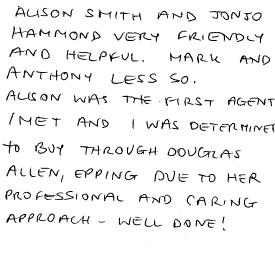 ALISON SMITH AND JONJO
HAMMOND VERY FRIENDLY
AND HELPFUL. MARK AND
ANTHONY LESS SO.
ALISON WAS THE FIRST AGENT
I MET AND I WAS DETERMINED
TO BUY THROUGH DOUGLAS
ALLEN, EPPING DUE TO HER
PROFESSIONAL AND CARING
APPROACH - WELL DONE!